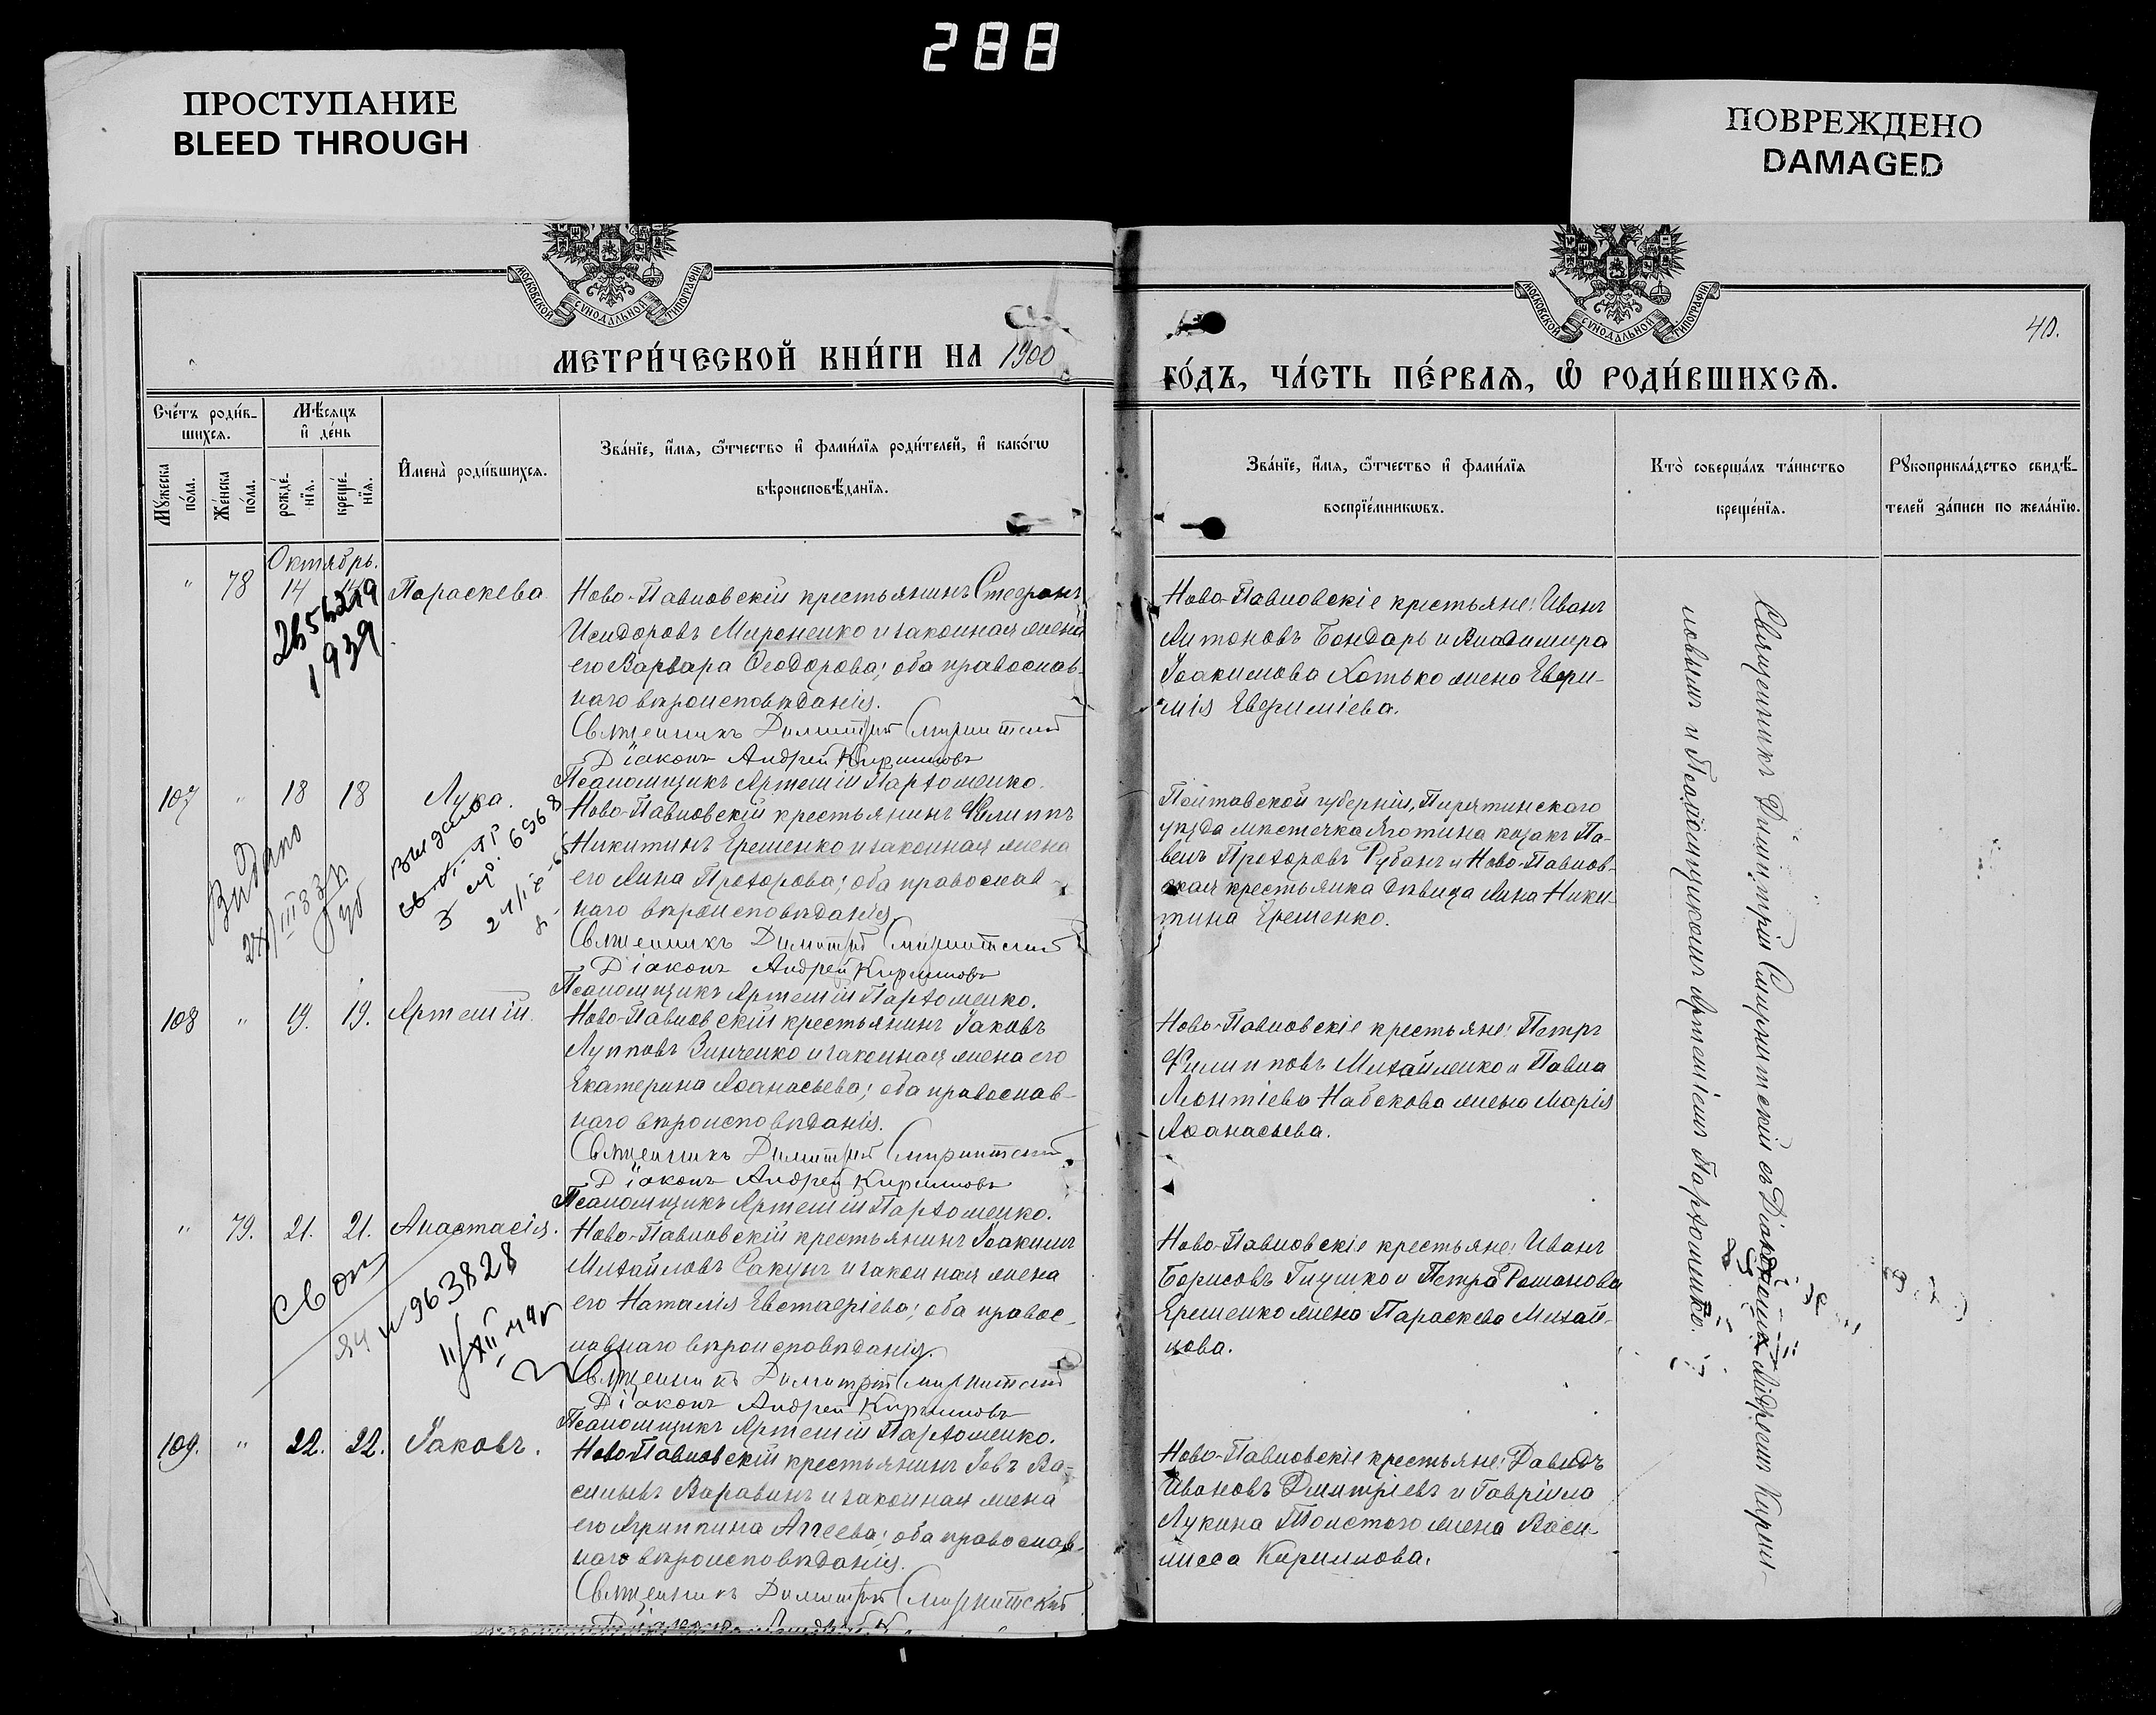 288
ПРОСТУПАНИЕ
BLEED THROUGH
ПОВРЕЖДЕНО
DAMAGED
МОСКОВСКОЙ СѴНОДАЛЬНОЙ ТИПОГРАФІИ
МОСКОВСКОЙ СѴНОДАЛЬНОЙ ТИПОГРАФІИ
40.
МЕТРИ́ЧЕСКОЙ КНИ́ГИ НА 1900
ГО́ДЪ, ЧА́СТЬ ПЕ́РВАЯ, Ѡ РОДИ́ВШИХСЯ.
Счетъ роди́в-
шихся.
Мѣсяцъ
и де́нь
Мꙋжеска
по́ла.
Же́нска
по́ла.
рожде́-
нїя.
креще́-
нїя.
Имена̀ роди́вшихся.
Зва́нїе, и́мя, ѻ́тчество и фами́лїя роди́телей, и како́гѡ
вѣроисповѣ́данїя.
Зва́нїе, и́мя, ѻ́тчество и фами́лїя
воспрїе́мникѡвъ.
Кто̀ соверша́лъ та́инство
креще́нїя.
Рꙋкоприкла́дство свидѣ́-
телей за́писи по жела́нїю.
Октябрь.
" 78 14 Параскева
Ново-Павловскій крестьянинъ Стефанъ
Исидоровъ Мироненко и законная жена
его Варвара Ѳеодорова; оба православ-
наго вѣроисповѣданія.
Священникъ Димитрій Смирнитскій
Діаконъ Андрей Кирилловъ
Псаломщикъ Артемій Пархоменко.
1939
Ново-Павловскіе крестьяне: Иванъ
Антоновъ Бондарь и Владимира
Іоакимова Хотько жена Евфи-
мія Евфиміева.
107 " 18 18 Лука.
Ново-Павловскій крестьянинъ Филиппъ
Никитинъ Ерешенко и законная жена
его Анна Прохорова; оба православ-
наго вѣроисповѣданія
Священникъ Димитрій Смирнитскій
Діаконъ Андрей Кирилловъ
Псаломщикъ Артемій Пархоменко.
Видано
Полтавской губерніи, Пирятинскаго
уѣзда мѣстечка Яготина козакъ Па-
велъ Прохоровъ Рубанъ и Ново-Павлов-
ская крестьянка дѣвица Анна Ники-
тина Ерешенко.
108 " 19. 19. Артемій
Ново-Павловскій крестьянинъ Іаковъ
Лупповъ Зинченко и законная жена его
Екатерина Аѳанасьева; оба православ-
наго вѣроисповѣданія.
Священникъ Димитрій Смирнитскій
Діаконъ Андрей Кирилловъ
Псаломщикъ Артемій Пархоменко.
Ново-Павловскіе крестьяне: Петръ
Филипповъ Михайленко и Павла
Леонтіева Набокова жена Марія
Аѳанасьева.
" 79. 21. 21. Анастасія.
Ново-Павловскій крестьянинъ Іоакимъ
Михайловъ Сакунъ и законная жена
его Наталія Евстафіева; оба правос-
лавнаго вѣроисповѣданія.
Священникъ Димитрій Смирнитскій
Діаконъ Андрей Кирилловъ
Псаломщикъ Артемій Пархоменко.
963828
Ново-Павловскіе крестьяне: Иванъ
Борисовъ Глушко и Петра Романова
Ерешенко жена Параскева Михай-
лова.
109. " 22. 22. Іаковъ.
Ново-Павловскій крестьянинъ Іовъ Ва-
сильевъ Варавинъ и законная жена
его Агриппина Аггеева; оба православ-
наго вѣроисповѣданія.
Священникъ Димитрій Смирнитскій
Ново-Павловскіе крестьяне: Давидъ
Ивановъ Дмитріевъ и Гавріила
Лукина Толстого жена Васи-
лисса Кириллова.
Священникъ Димитрій Смирнитскій съ Діакономъ Андреемъ Кирил-
ловымъ и Псаломщикомъ Артеміемъ Пархоменко.